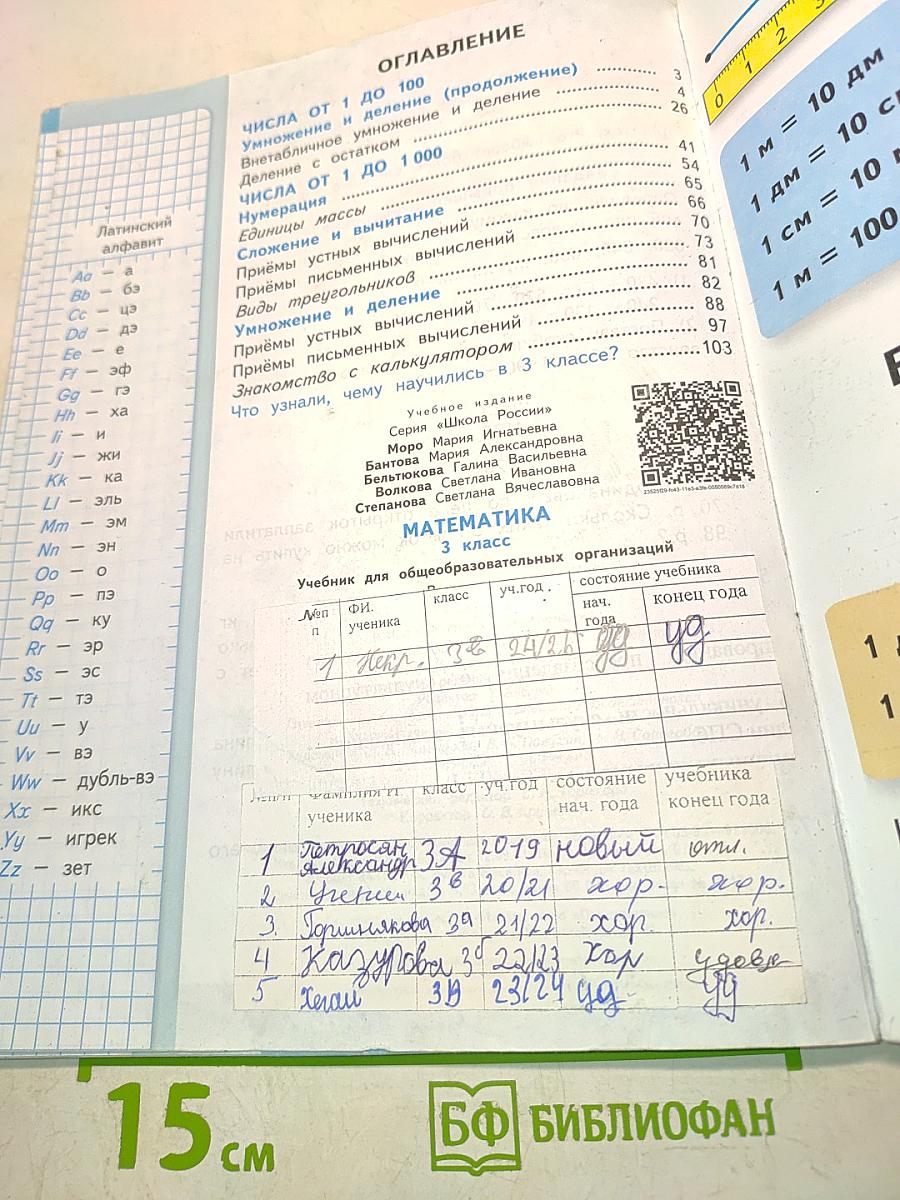 Латинский
алфавит
Aa — а
Bb — бэ
Cc — цэ
Dd — дэ
Ee — е
Ff — эф
Gg — гэ
Hh — ха
Ii — и
Jj — жи
Kk — ка
Ll — эль
Mm — эм
Nn — эн
Oo — о
Pp — пэ
Qq — ку
Rr — эр
Ss — эс
Tt — тэ
Uu — у
Vv — вэ
Ww — дубль-вэ
Xx — икс
Yy — игрек
Zz — зет
ОГЛАВЛЕНИЕ
ЧИСЛА ОТ 1 ДО 100
Умножение и деление (продолжение) ........... 3
Внетабличное умножение и деление ........... 4
Деление с остатком ........... 26
ЧИСЛА ОТ 1 ДО 1 000
Нумерация ........... 41
Единицы массы ........... 54
Сложение и вычитание ........... 65
Приёмы устных вычислений ........... 66
Приёмы письменных вычислений ........... 70
Виды треугольников ........... 73
Умножение и деление ........... 81
Приёмы устных вычислений ........... 82
Приёмы письменных вычислений ........... 88
Знакомство с калькулятором ........... 97
Что узнали, чему научились в 3 классе? ........... 103
Учебное издание
Серия «Школа России»
Моро Мария Игнатьевна
Бантова Мария Александровна
Бельтюкова Галина Васильевна
Волкова Светлана Ивановна
Степанова Светлана Вячеславовна
МАТЕМАТИКА
3 класс
Учебник для общеобразовательных организаций
№п п ФИ. ученика класс уч.год. состояние учебника
нач. года конец года
1 Некр. 3в уд
ученика класс уч.год состояние нач. года учебника конец года
1 Петросян Александр 3А 2019 новый отл.
2 3в 20/21 хор. хор.
3. Горшнякова 3а 21/22 хор. хор.
4 Казурова 3б 22/23 хор удовл
5 Хегай 3в 23/24 уд уд
0 1 2 3
1 м = 10 дм
1 дм = 10 с
1 см = 10
1 м = 100
1
1
15 см
БФ БИБЛИОФАН